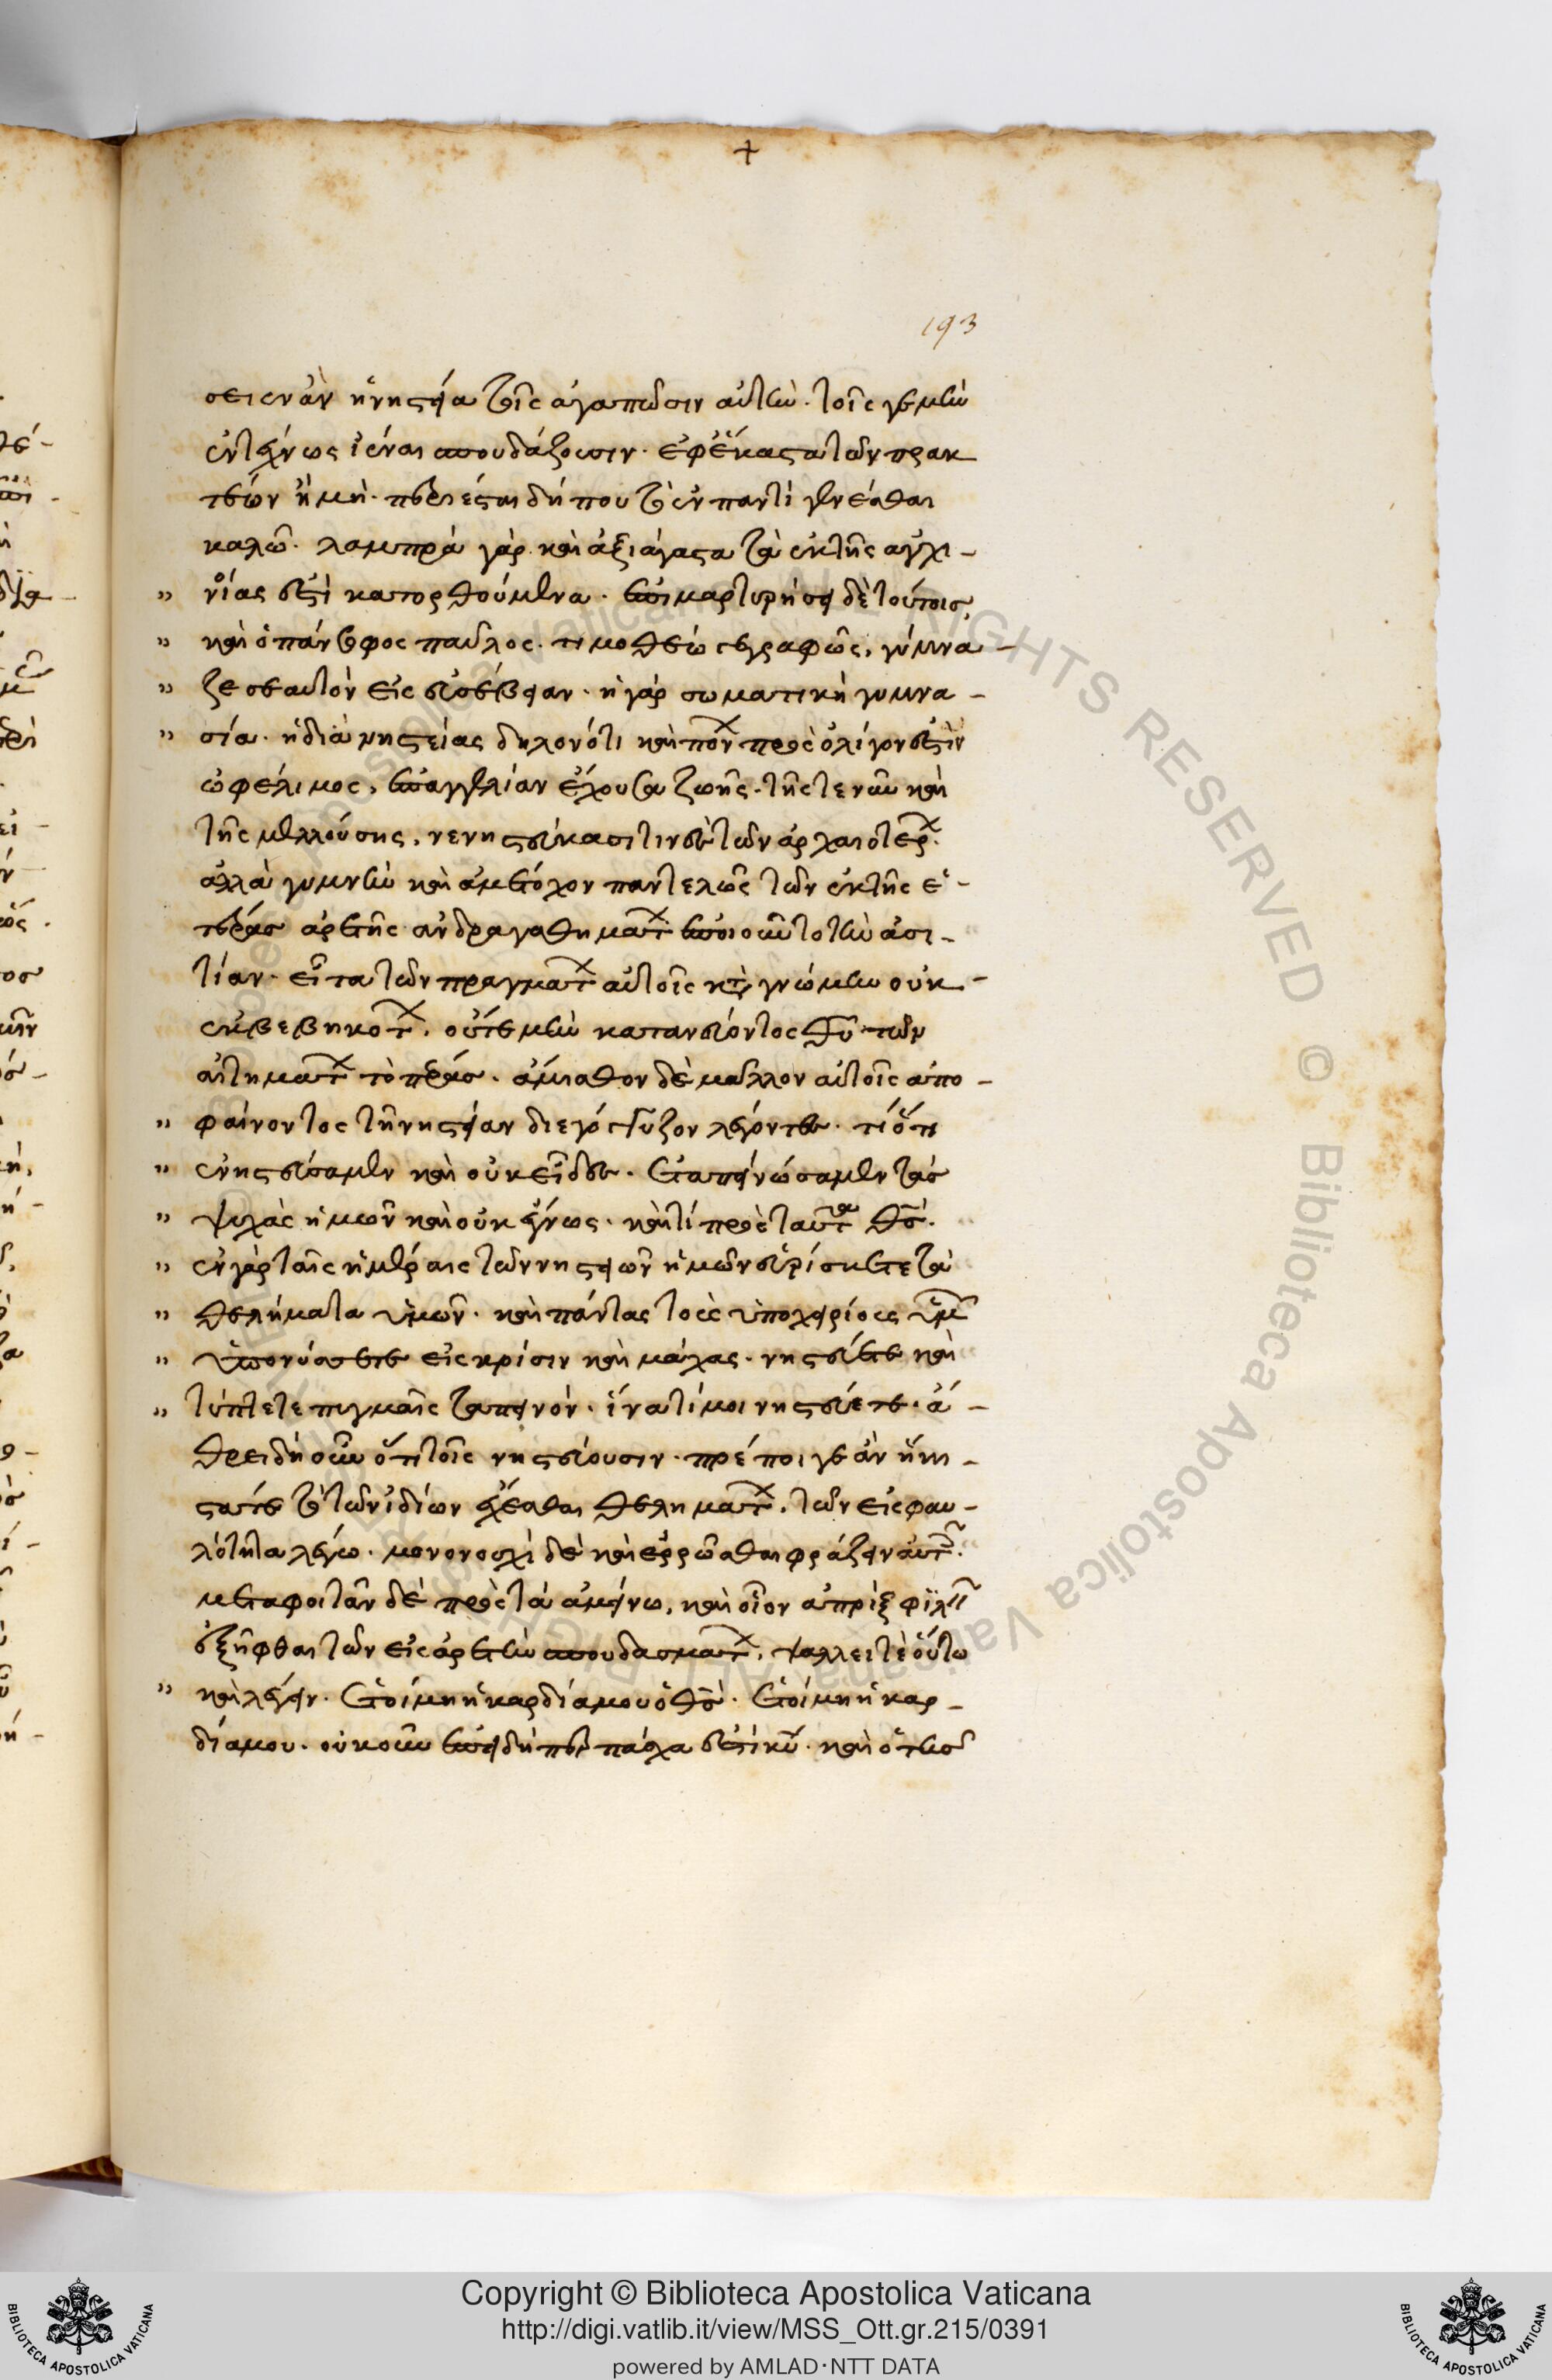 +
193
σειεν ἂν ἡ νηστεία τοῖς ἀγαπῶσιν αὐτὴν. τοῖς γε μὴν
εὐτέχνως ἰέναι σπουδάζουσιν. ἐφ' ἕκαστα τῶν πρακ
τέων ἢ μὴ. περιέσται δή που τὸ ἐν παντὶ γενέσθαι
καλῶ. λαμπρὰ γὰρ καὶ ἀξιάγαστα τὰ ἐκ τῆς ἀγχι-
" νοίας ἐστὶ κατορθούμενα. ἐπιμαρτυρήσει δὲ τούτοις
" καὶ ὁ πάνσοφος παῦλος. τιμοθέω γεγραφὼς, γύμνα-
" ζε σεαυτὸν εἰς εὐσέβειαν. ἡ γὰρ σωματικὴ γυμνα-
" σία. ἡ διὰ νηστείας δηλονότι καὶ πόν πρὸς ὀλίγον ἐστὶν
ὠφέλιμος, ἐπαγγελίαν ἔχουσα ζωῆς. τῆς τε νῦν καὶ
τῆς μελλούσης, νενηστεύκασι τινὲς τῶν ἀρχαιοτέρ.
ἀλλὰ γυμνὴν καὶ ἀμέτοχον παντελῶς τῶν ἐκ τῆς ἑ-
τέρας ἀρετῆς ἀνδραγαθημάτ ἐποιοῦντο τὴν ἀσι-
τίαν. εἶτα τῶν πραγμάτ αὐτοῖς κατὰ γνώμην οὐκ-
ἐκβεβηκότ. οὔτε μὴν κατανεύοντος θυ τῶν
αἰτημάτ τὸ πέρας. ἄμισθον δὲ μᾶλλον αὐτοῖς ἀπο-
" φαίνοντος τὴν νηστείαν διεγόγγυζον λέγοντες. τί ὅτι
" ἐνηστεύσαμεν καὶ οὐκ εἶδες. ἐταπεινώσαμεν τὰς
" ψυχὰς ἡμῶν καὶ οὐκ ἔγνως. καὶ τί πρὸς ταῦτα θσ.
" ἐν γὰρ ταῖς ἡμέραις τῶν νηστειῶν ἡμῶν εὑρίσκετε τὰ
" θελήματα ὑμῶν. καὶ πάντας τοὺς ὑποχειρίους ὑμ
" ὑπονύσσετε εἰς κρίσιν καὶ μάχας. νηστεύετε καὶ
" τύπτετε πυγμαῖς ταπεινόν. ἵνα τί μοι νηστεύετε. ἄ-
θρει δὴ οὖν ὅτι τοῖς νηστεύουσιν. πρέποι γε ἂν ἥκι-
στά τε τὸ τῶν ἰδίων ἔχεσθαι θελημάτ. τῶν εἰς φαυ-
λότητα λέγω. μονονουχὶ δὲ καὶ ἐρρῶσθαι φράζειν αὐτ.
μεταφοιτᾶν δὲ πρὸς τὰ ἀμείνω, καὶ οἷον ἀπρὶξ φιλ
ἐξῆφθαι τῶν εἰς ἀρετὴν σπουδασμάτ. ψάλλει τε οὕτω
" καὶ λέγειν. ἑτοίμη ἡ καρδία μου ὁ θσ. ἑτοίμη ἡ καρ-
δία μου. οὐκοῦν ἐπειδήπερ πάσχα ἐστὶ κυ. καὶ ὁ τῆς
Copyright © Biblioteca Apostolica Vaticana
http://digi.vatlib.it/view/MSS_Ott.gr.215/0391
powered by AMLAD·NTT DATA